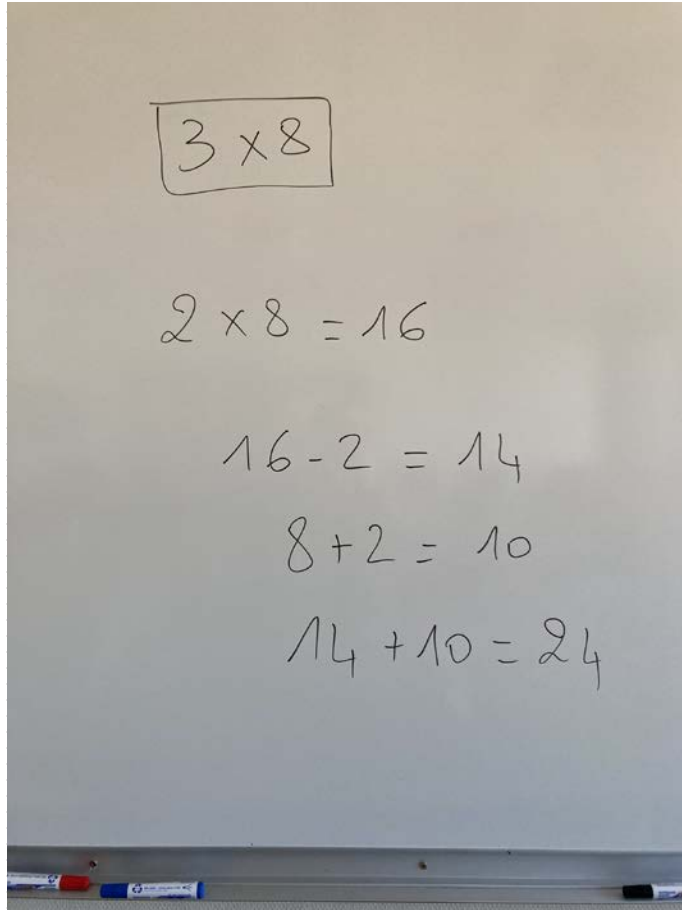 3 x 8
2 x 8 = 16
16 - 2 = 14
8 + 2 = 10
14 + 10 = 24